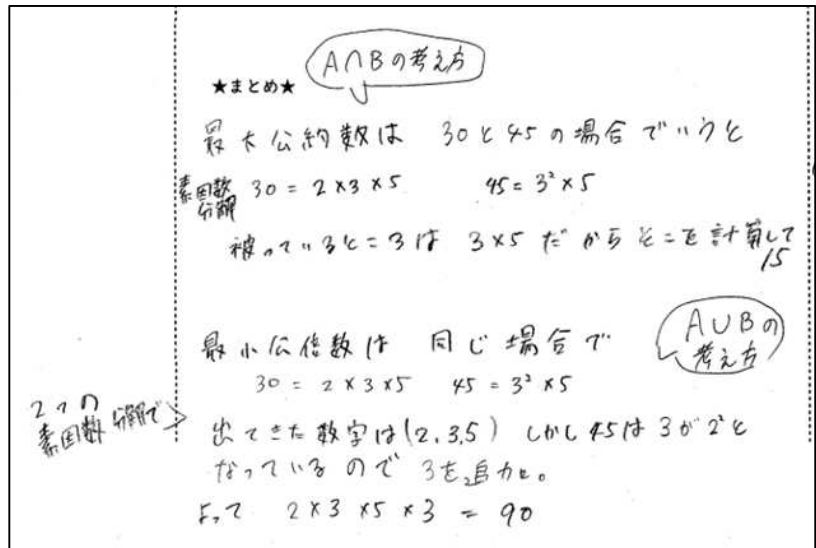 A∩Bの考え方
★まとめ★
最大公約数は 30と45の場合でいうと
素因数分解 30 = 2×3×5 45 = 3²×5
被っているところは 3×5 だからそこを計算して
15
最小公倍数は 同じ場合で
A∪Bの考え方
30 = 2×3×5 45 = 3²×5
2つの素因数分解で
出てきた数字は(2,3,5) しかし45は3が2こと
なっているので 3を追加。
よって 2×3×5×3 = 90